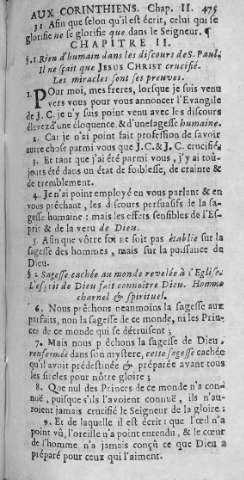 AUX CORINTHIENS. Chap. II. 475
31. Afin que selon qu'il est écrit, celui qui se
glorifie ne se glorifie que dans le Seigneur. ¶
CHAPITRE II.
§.1. Rien d'humain dans les discours de S. Paul.
Il ne sçait que JESUS CHRIST crucifié.
Les miracles sont ses preuves.
POur moi, mes freres, lorsque je suis venu
vers vous pour vous annoncer l'Evangile
de J. C. je n'y suis point venu avec les discours
élevez d'une éloquence, & d'une sagesse humaine.
2. Car je n'ai point fait profession de savoir
autre chose parmi vous que J.C. & J. C. crucifié.
3. Et tant que j'ai été parmi vous, j'y ai toû-
jours été dans un état de foiblesse, de crainte &
de tremblement.
4. Je n'ai point employé en vous parlant & en
vous prêchant, les discours persuasifs de la sa-
gesse humaine: mais les effets sensibles de l'Es-
prit & de la vertu de Dieu.
5. Afin que vôtre foi ne soit pas établie sur la
sagesse des hommes, mais sur la puissance de
Dieu.
§ 2 Sagesse cachée au monde revelée à l'Eglise.
L'esprit de Dieu fait connoître Dieu. Homme
charnel & spirituel.
6. Nous prêchons neanmoins la sagesse aux
parfaits, non la sagesse de ce monde, ni les Prin-
ces de ce monde qui se détruisent;
7. Mais nous prêchons la sagesse de Dieu,
renfermée dans son mystere, cette sagesse cachée
qu'il avoit prédestinée & préparée avant tous
les siecles pour nôtre gloire;
8. Que nul des Princes de ce monde n'a con-
nuë, puisque s'ils l'avoient connuë, ils n'au-
roient jamais crucifié le Seigneur de la gloire:
9. Et de laquelle il est écrit: que l'œil n'a
point vû, l'oreille n'a point entendu, & le cœur
de l'homme n'a jamais conçû ce que Dieu a
préparé pour ceux qui l'aiment.